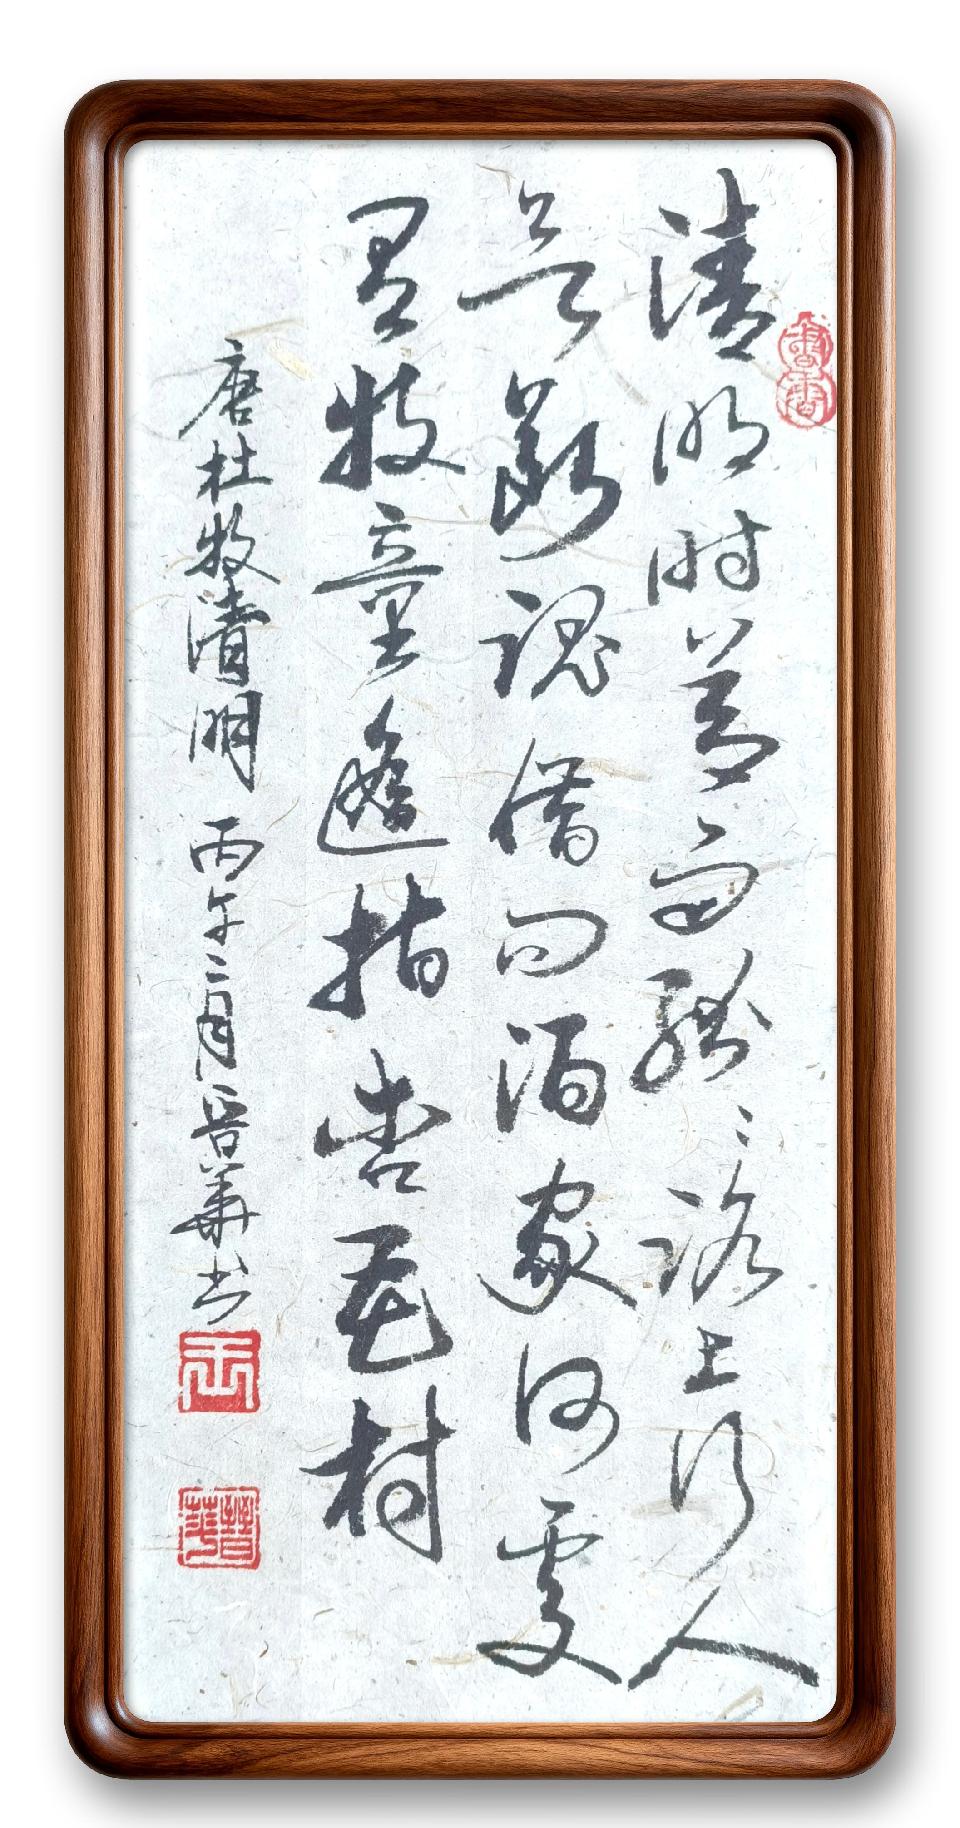 書香
清明时节雨纷〻路上行人
欲断魂借问酒家何處
有牧童遥指杏花村
唐杜牧清明 丙午二月晋華书
王
晉華